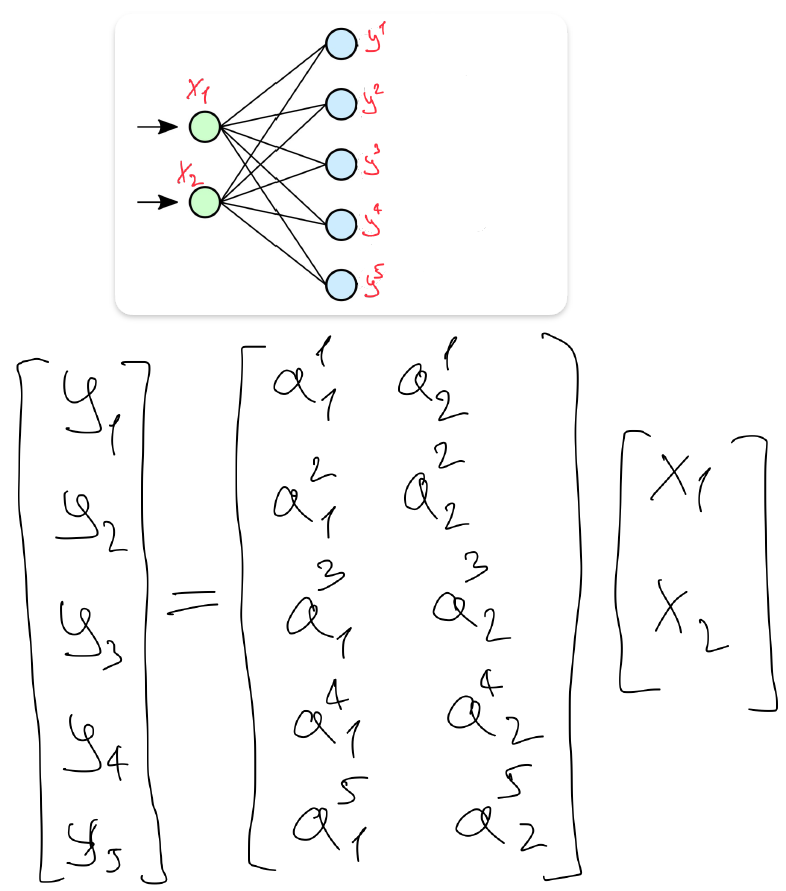 y¹
x₁
y²
y³
x₂
y⁴
y⁵
[y₁ y₂ y₃ y₄ y₅] = [a₁¹ a₂¹
a₁² a₂²
a₁³ a₂³
a₁⁴ a₂⁴
a₁⁵ a₂⁵] [x₁ x₂]